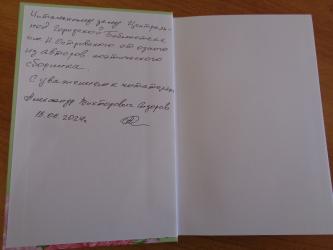 Читальному залу Централь-
ной Городской Библиотеки
им. Н. Островского от одного
из авторов поэтического
сборника.
С уважением к читателям,
Александр Викторович
18.06.2024г.